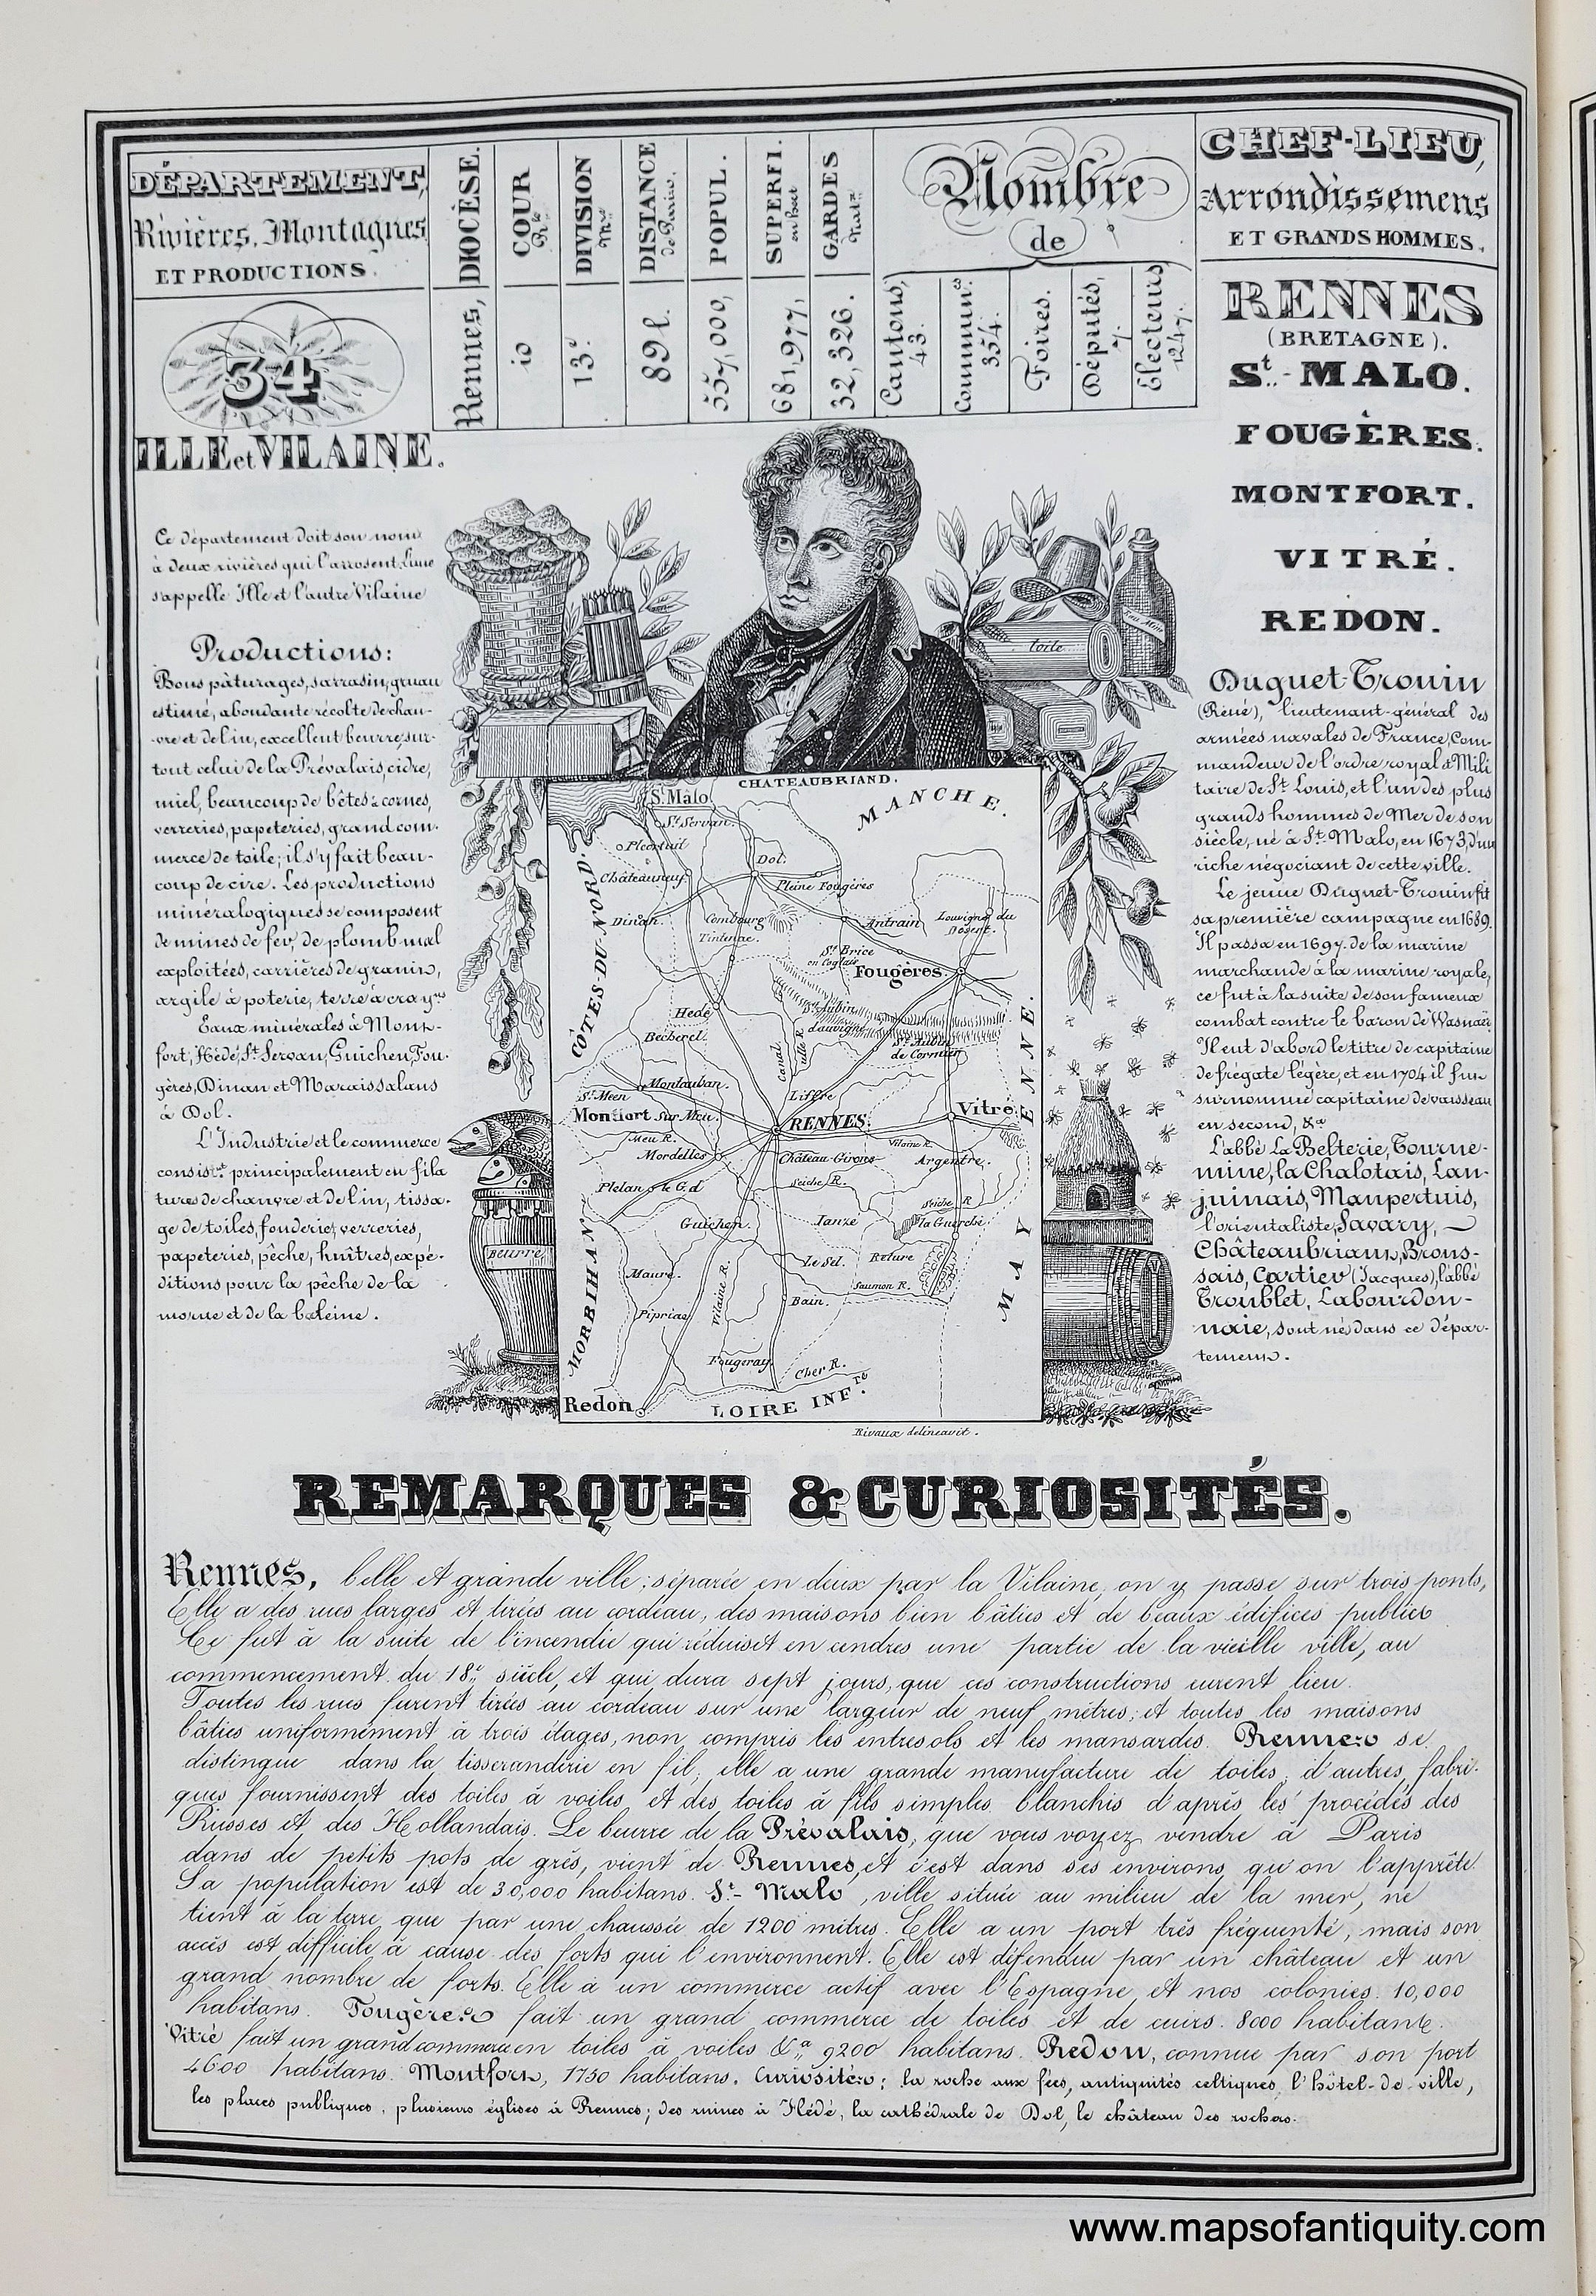 DÉPARTEMENT,
Rivières, Montagnes
ET PRODUCTIONS.
DIOCÈSE.
Rennes,
COUR Rle
10
DIVISION Mre
13e
DISTANCE de Paris.
89 l.
POPUL.
557,000,
SUPERFI. en hect
681,977,
GARDES Natx
32,326.
Nombre
de
Cantons, 43.
Commun.es 354.
Foires.
Députés, 7.
Electeurs 1247.
CHEF-LIEU,
Arrondissemens
ET GRANDS HOMMES.
34
ILLE et VILAINE.
Ce département doit son nom
à deux rivières qui l'arrosent, l'une
s'appelle Ille et l'autre Vilaine
Productions:
Bons pâturages, sarrasin, gruau
estimé, abondante récolte de chan-
-vre et de lin, excellent beurre, sur-
tout celui de la Prévalais, cidre,
miel, beaucoup de bêtes à cornes,
verreries, papeteries, grand com-
merce de toile; il s'y fait beau-
coup de cire. Les productions
minéralogiques se composent
de mines de fer, de plomb mal
exploitées, carrières de granit,
argile à poterie, terre à crayns
Eaux minérales à Mont-
fort, Hédé, St Servan, Guichen, Fou-
gères, Dinan et Marais salans
à Dol.
L'Industrie et le commerce
consistt principalement en fila
tures de chanvre et de lin, tissa-
ge de toiles, fonderie, verreries,
papeteries, pêche, huîtres, expé-
ditions pour la pêche de la
morue et de la baleine.
RENNES
(BRETAGNE).
St.-MALO.
FOUGÈRES.
MONTFORT.
VITRÉ.
REDON.
Duguet-Trouin
(Réné), lieutenant-général des
armées navales de France, Com-
mandeur de l'ordre royal & Mili
taire de St Louis, et l'un des plus
grands hommes de Mer de son
siècle, né à St Malo, en 1673, d'un
riche négociant de cette ville.
Le jeune Duguet-Trouin fit
sa première campagne en 1689.
Il passa en 1697 de la marine
marchande à la marine royale,
ce fut à la suite de son fameux
combat contre le baron de Wasnaër,
Il eut d'abord le titre de capitaine
de frégate légère, et en 1704 il fut
surnommé capitaine de vaisseau
en second, &a
L'abbé La Belterie, Tourne-
mine, la Chalotais, Lan-
juinais, Maupertuis,
l'orientaliste Savary,
Châteaubriant, Brons-
sais, Cartier (Jacques), l'abbé
Troublet, Labourdon-
naie, sont nés dans ce dépar-
tement.
toile
BEURRE
CHATEAUBRIAND.
MANCHE.
CÔTES-DU-NORD.
MORBIHAN
MAYENNE.
LOIRE INF.re
St Malo
St Servan
Pleurtuit
Châteauneuf
Dol.
Pleine Fougères
Dinan
Combourg
Tinteniac.
Antrain
Louvigné du Désert.
St Brice en Coglais
Fougères.
Hedé
Bécherel.
St Aubin d'auvigné
St Aubin de Cormier
Canal
Ille R.
Montauban.
St Meen
Liffré
Montfort Sur Meu.
RENNES.
Vitré
Meu R.
Mordelles
Vilaine R.
Château-Girons
Argentré.
Plelan le Gd
Seiche R.
Seiche R
Guichen.
Janze
la Guerche
Maure.
Le Sel.
Retiré
Saumon R.
Bain.
Pipriac
Vilaine R.
Fougeray
Cher R.
Redon
Rivaux delineavit.
REMARQUES & CURIOSITÉS.
Rennes, belle et grande ville; séparée en deux par la Vilaine, on y passe sur trois ponts,
Elle a des rues larges et tirées au cordeau, des maisons bien bâties et de beaux édifices publics
Ce fut à la suite de l'incendie qui réduisit en cendres une partie de la vieille ville, au
commencement du 18e siècle, et qui dura sept jours, que ces constructions eurent lieu.
Toutes les rues furent tirées au cordeau sur une largeur de neuf mètres; et toutes les maisons
bâties uniformément à trois étages, non compris les entresols et les mansardes. Rennes se
distingue dans la tisseranderie en fil, elle a une grande manufacture de toiles, d'autres fabri-
ques fournissent des toiles à voiles et des toiles à fils simples blanchis d'après les procédés des
Russes et des Hollandais. Le beurre de la Prévalais, que vous voyez vendre à Paris
dans de petits pots de grès, vient de Rennes, et c'est dans ses environs qu'on l'apprête.
Sa population est de 30,000 habitans. St-Malo, ville située au milieu de la mer, ne
tient à la terre que par une chaussée de 1200 mètres. Elle a un port très fréquenté, mais son
accès est difficile à cause des forts qui l'environnent. Elle est défendue par un château et un
grand nombre de forts. Elle a un commerce actif avec l'Espagne et nos colonies. 10,000
habitans. Fougères fait un grand commerce de toiles et de cuirs. 8000 habitants.
Vitré fait un grand commerce en toiles à voiles &a 9200 habitans. Redon, connue par son port
4600 habitans. Montfort, 1750 habitans. Curiosités: la roche aux fées, antiquités celtiques, l'hôtel-de-ville,
les places publiques, plusieurs églises à Rennes; des ruines à Hédé, la cathédrale de Dol, le château des rochers.
www.mapsofantiquity.com